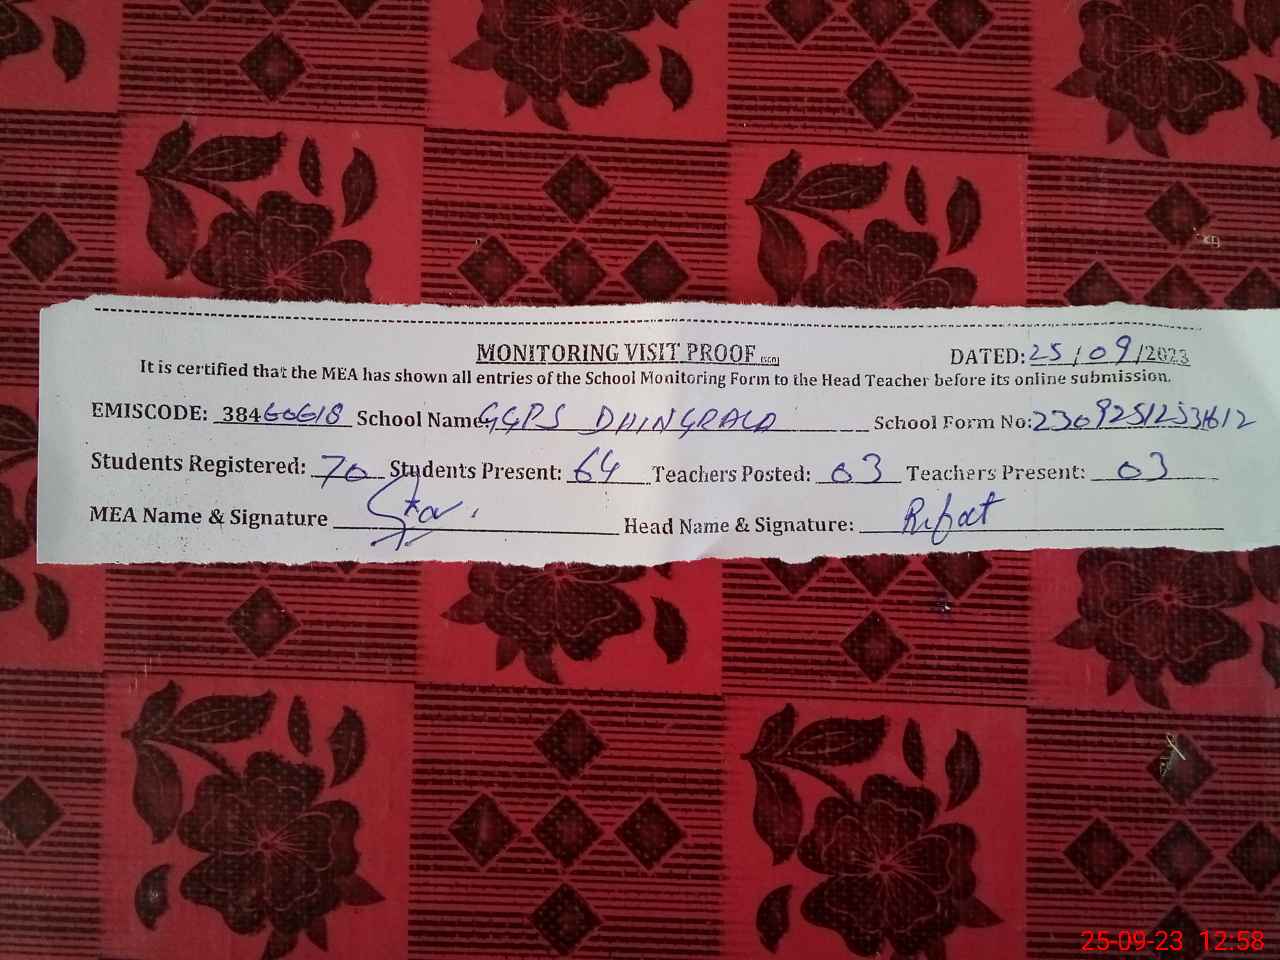 MONITORING VISIT PROOF DATED: 25/09/2023
It is certified that the MEA has shown all entries of the School Monitoring Form to the Head Teacher before its online submission.
EMISCODE: 38460618 School Name: GGPS School Form No:
Students Registered: 70 Students Present: 64 Teachers Posted: 03 Teachers Present: 03
MEA Name & Signature Head Name & Signature: Rifat
25-09-23 12:58